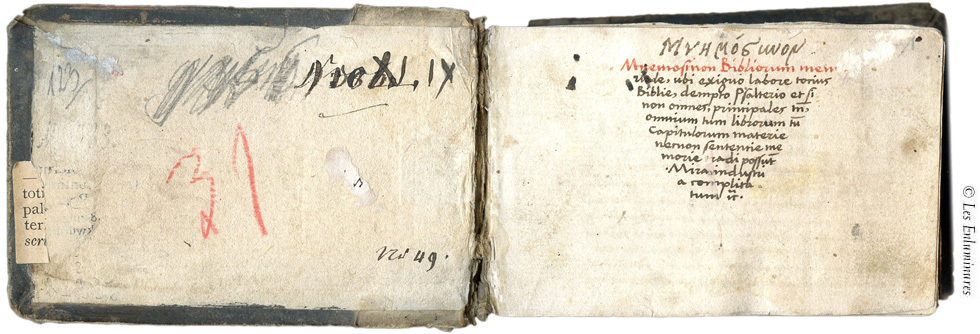 No XLIX
31
toti
pal
ter
scri
No 49.
Μνημόσυνον
Mnemosinon Bibliorum mem
ubi exiguo labore totius
Biblie, dempto Psalterio et si
non omnes, principales tn̄,
omnium tum librorum tū
Capitulorum materie
necnon sententie me
morie radi possūt
Mira industri
a complica
tum
© Les Enluminures